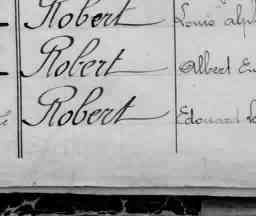 Robert Louis
Robert Albert
Robert Edouard